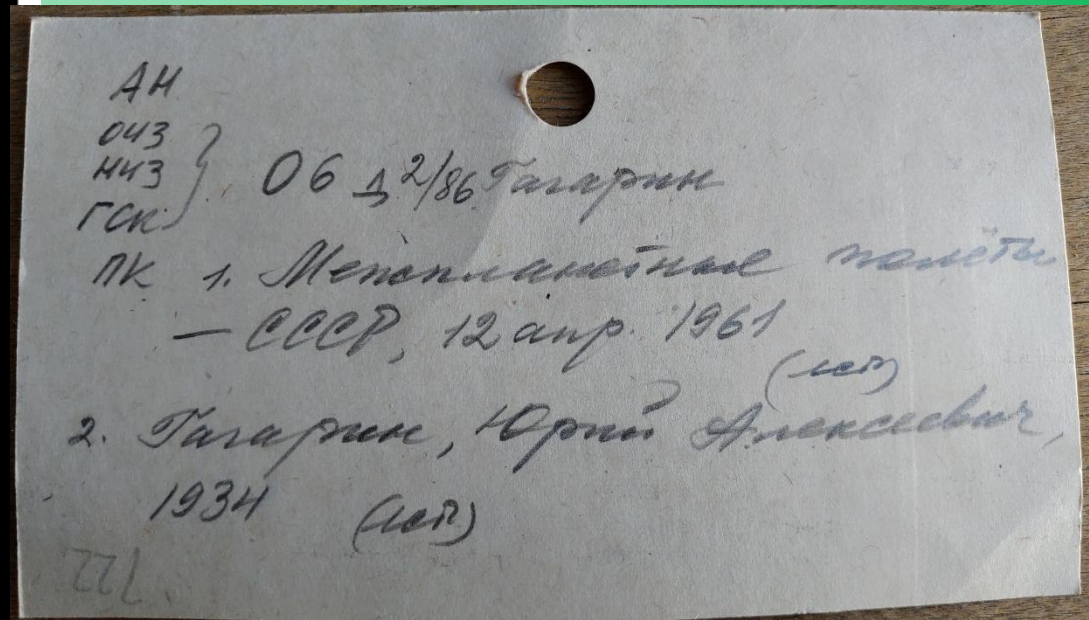 АН
ОЧЗ
НЧЗ
ГСК
Об Д2/86 Гагарин
ПК 1. Межпланетные полёты
— СССР, 12 апр. 1961
(ист)
2. Гагарин, Юрий Алексеевич,
1934 (ист)
722